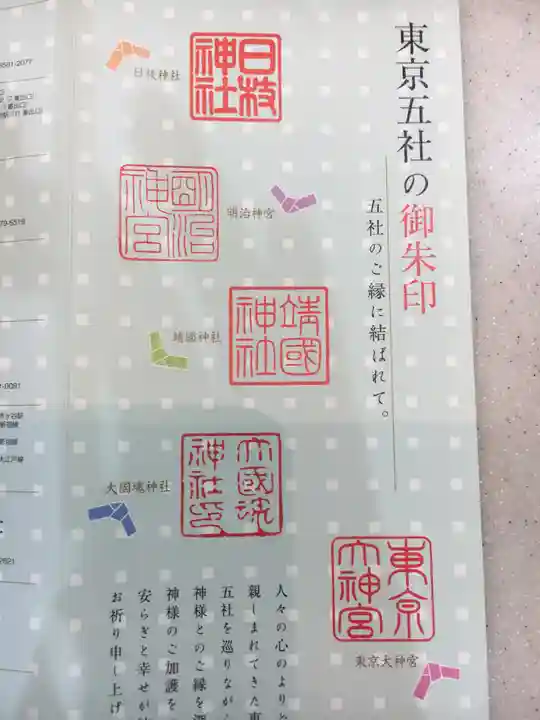 東京五社の御朱印
五社のご縁に結ばれて。
日枝神社
日枝神社
明治神宮
明治神宮
靖國神社
靖國神社
大國魂神社印
大國魂神社
東京大神宮
東京大神宮
人々の心のよりど
親しまれてきた東
五社を巡りながら
神様とのご縁を深
神様のご加護を
安らぎと幸せが
お祈り申し上げ
3581-2077
79-5519
1-0081
大江戸線
2621